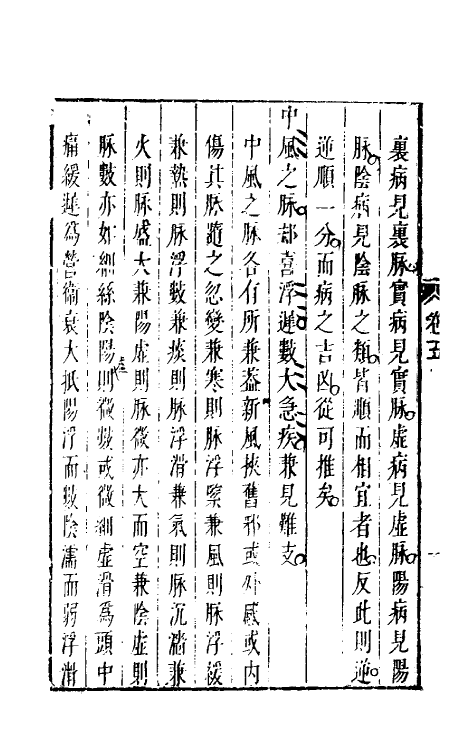 裏病見裏脉實病見實脉虛病見虛脉陽病見陽
脉陰病見陰脉之類皆順而相宜者也反此則逆
逆順一分而病之吉凶從可推矣
中風之脉却喜浮遲數大急疾兼見難支
中風之脉各有所兼盖新風挾舊邪或外感或内
傷其脉隨之忽變兼寒則脉浮緊兼風則脉浮緩
兼熱則脉浮數兼痰則脉浮滑兼氣則脉沉濇兼
火則脉盛大兼陽虛則脉微亦大而空兼陰虛則
脉數亦如細絲陰陽虛則微數或微細虛滑爲頭中
痛緩遲爲營衞衰大抵陽浮而數陰濡而弱浮滑
卷五